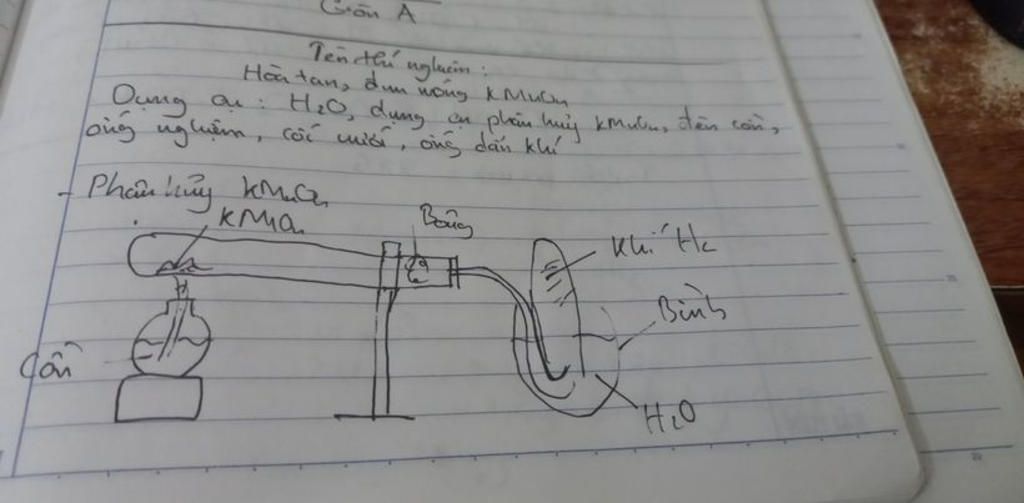 Tên thí nghiệm:
Hòa tan, đun nóng KMnO₄
Dụng cụ: H₂O, dụng cụ phân huỷ KMnO₄, đèn cồn,
ống nghiệm, ống dẫn khí
- Phân hủy KMnO₄
KMnO₄
Bông
Khí
Bình
Cồn
H₂O